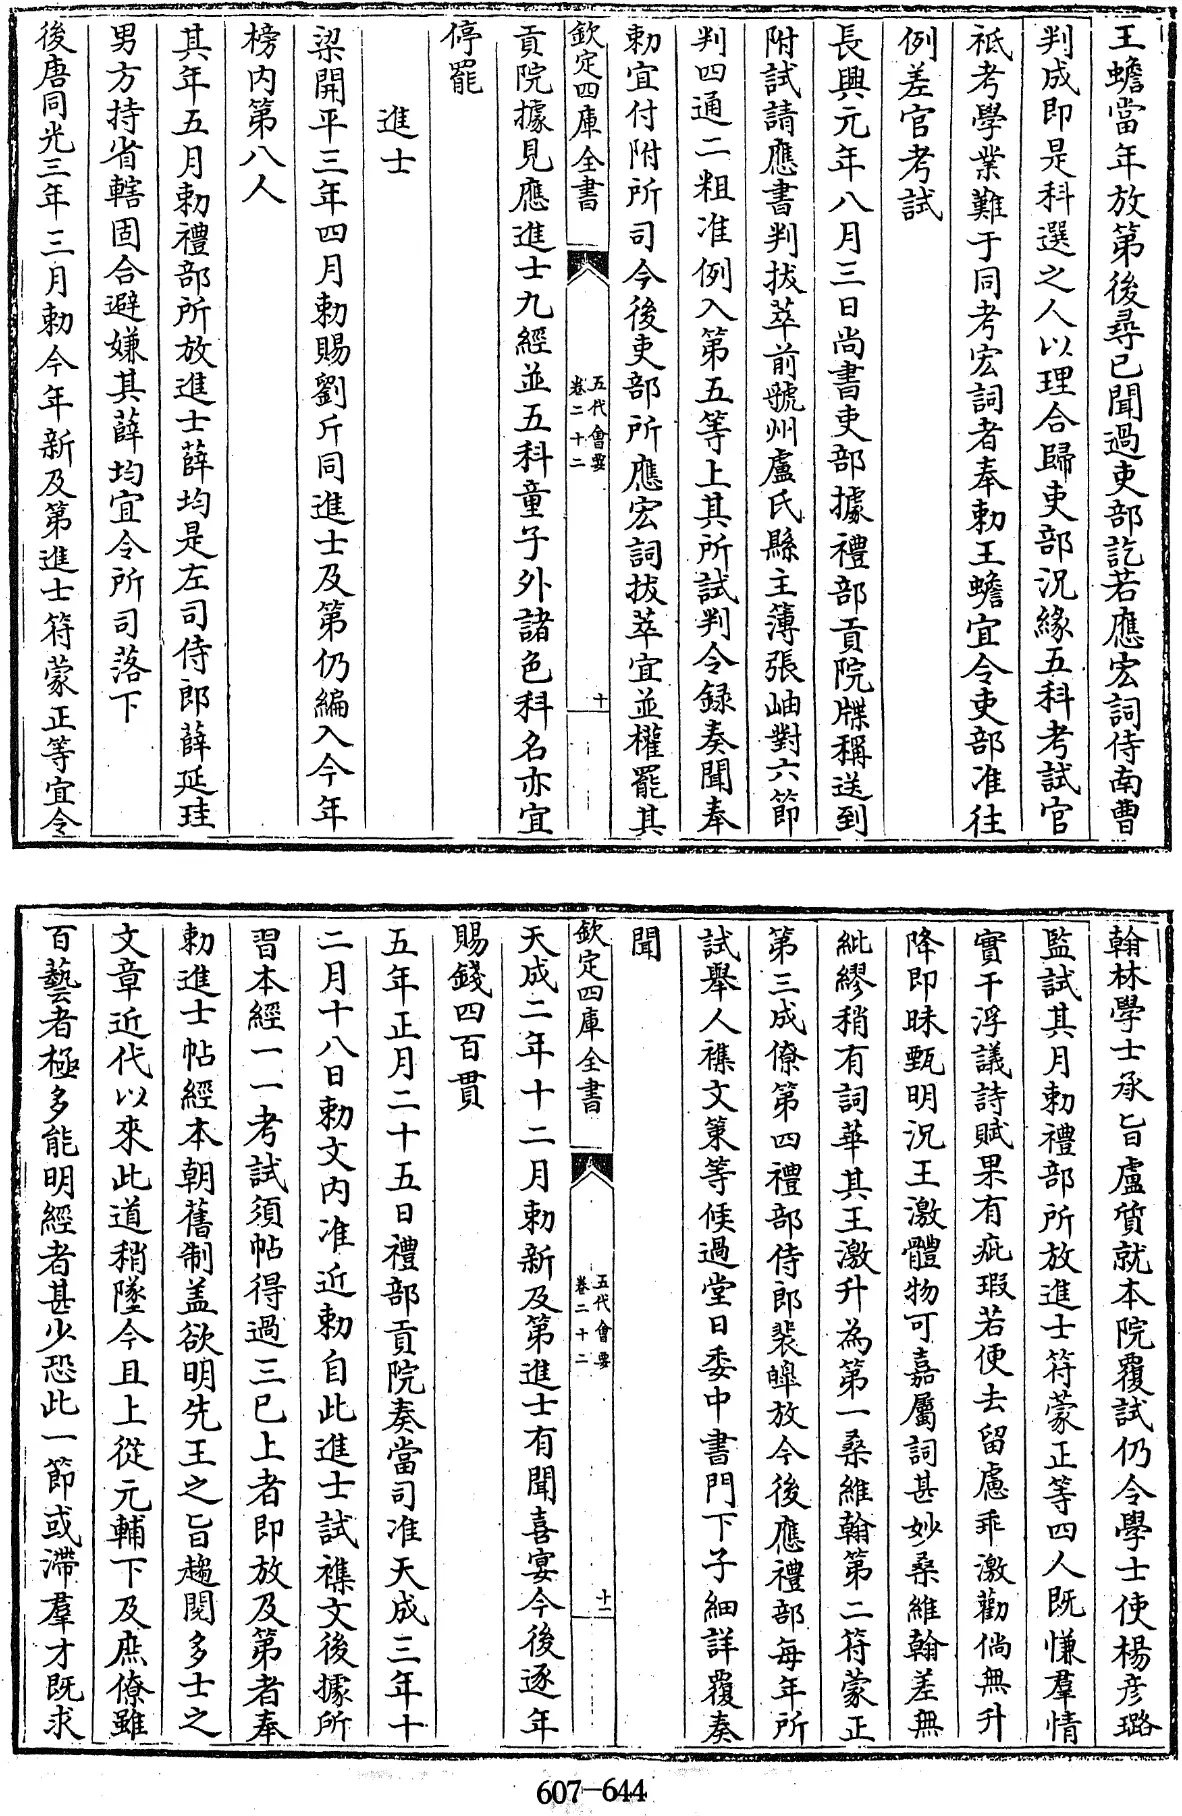 王蟾當年放第後尋已聞過吏部訖若應宏詞侍南曹
判成即是科選之人以理合歸吏部況緣五科考試官
祇考學業難于同考宏詞者奉勅王蟾宜令吏部准往
例差官考試
長興元年八月三日尚書吏部據禮部貢院牒稱送到
附試請應書判拔萃前虢州盧氏縣主簿張岫對六節
判四通二粗准例入第五等上其所試判今録奏聞奉
勅宜付附所司今後吏部所應宏詞拔萃宜並權罷其
欽定四庫全書
五代會要
卷二十二
十
貢院據見應進士九經並五科童子外諸色科名亦宜
停罷
進士
梁開平三年四月勅賜劉斤同進士及第仍編入今年
榜内第八人
其年五月勅禮部所放進士薛均是左司侍郎薛延珪
男方持省轄固合避嫌其薛均宜令所司落下
後唐同光三年三月勅今年新及第進士符蒙正等宜令
翰林學士承旨盧質就本院覆試仍令學士使楊彦璐
監試其月勅禮部所放進士符蒙正等四人既慊羣情
實干浮議詩賦果有疵瑕若便去留慮乖激勸倘無升
降即昧甄明況王澈體物可嘉屬詞甚妙桑維翰差無
紕繆稍有詞華其王澈升為第一桑維翰第二符蒙正
第三成僚第四禮部侍郎裴皥放今後應禮部每年所
試舉人襍文策等候過堂日委中書門下子細詳覆奏
聞
欽定四庫全書
五代會要
卷二十二
十一
天成二年十二月勅新及第進士有聞喜宴今後逐年
賜錢四百貫
五年正月二十五日禮部貢院奏當司准天成三年十
二月十八日勅文内准近勅自此進士試襍文後據所
習本經一一考試須帖得過三已上者即放及第者奉
勅進士帖經本朝舊制盖欲明先王之旨趨閲多士之
文章近代以來此道稍墜今且上從元輔下及庶僚雖
百藝者極多能明經者甚少恐此一節或滯羣才既求
607-644